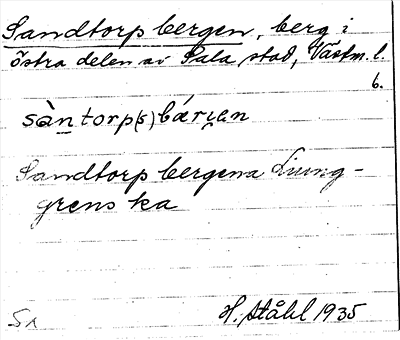 Sandtorpsbergen, berg i
östra delen av Sala stad, Västm. l.
6.
sàntorp(s)bárjen
Sandtorpsbergena Ljung-
grenska
H. Ståhl 1935